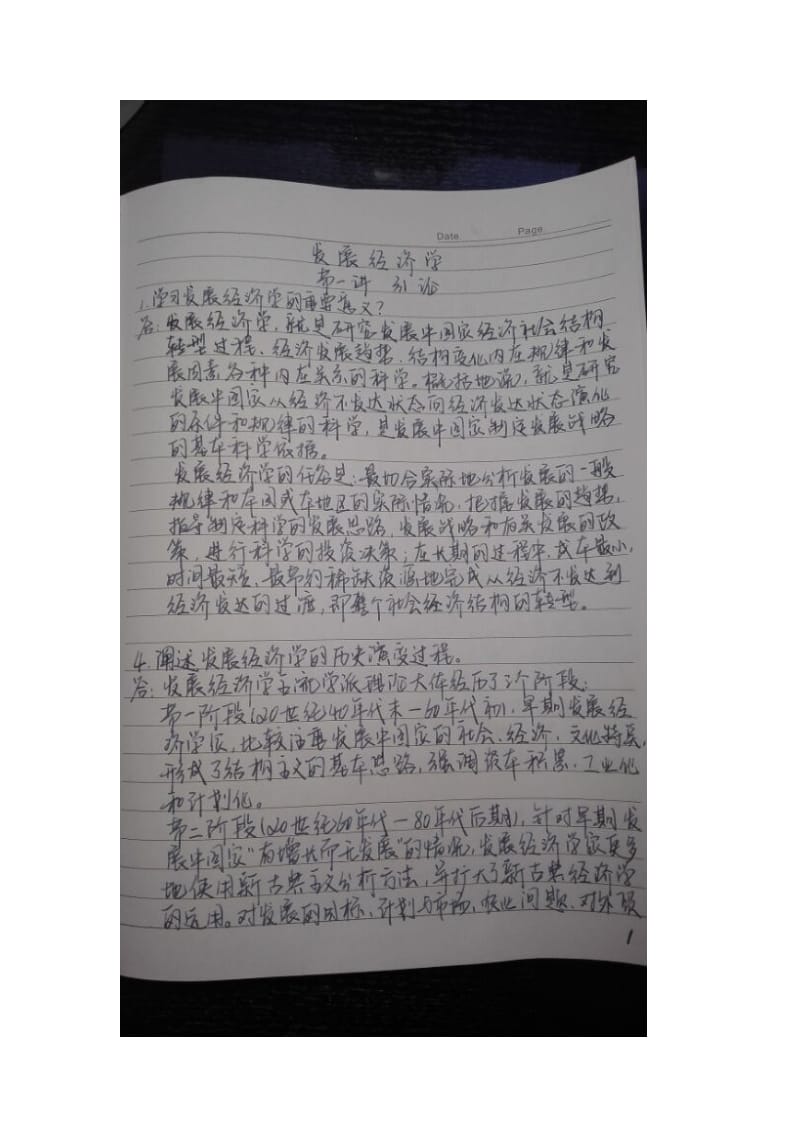 Date Page
发展经济学
第一讲 引论
1.学习发展经济学的重要意义?
答:发展经济学,就是研究发展中国家经济社会结构
转型过程、经济发展趋势、结构变化内在规律和发
展因素各种内在关系的科学。概括地说,就是研究
发展中国家从经济不发达状态向经济发达状态演化
的条件和规律的科学,是发展中国家制定发展战略
的基本科学依据。
发展经济学的任务是:最切合实际地分析发展的一般
规律和本国或本地区的实际情况,把握发展的趋势,
指导制定科学的发展思路,发展战略和有关发展的政
策,进行科学的投资决策;在长期的过程中,成本最小,
时间最短、最节约稀缺资源地完成从经济不发达到
经济发达的过渡,即整个社会经济结构的转型。
4.阐述发展经济学的历史演变过程。
答:发展经济学主流学派理论大体经历了3个阶段:
第一阶段(20世纪40年代末—60年代初),早期发展经
济学家,比较注重发展中国家的社会、经济、文化特点,
形成了结构主义的基本思路,强调资本积累、工业化
和计划化。
第二阶段(20世纪60年代—80年代后期),针对早期发
展中国家“有增长而无发展”的情况,发展经济学家更多
地使用新古典主义分析方法,并扩大了新古典经济学
的运用。对发展的目标、计划与市场、农业问题、对外贸
1